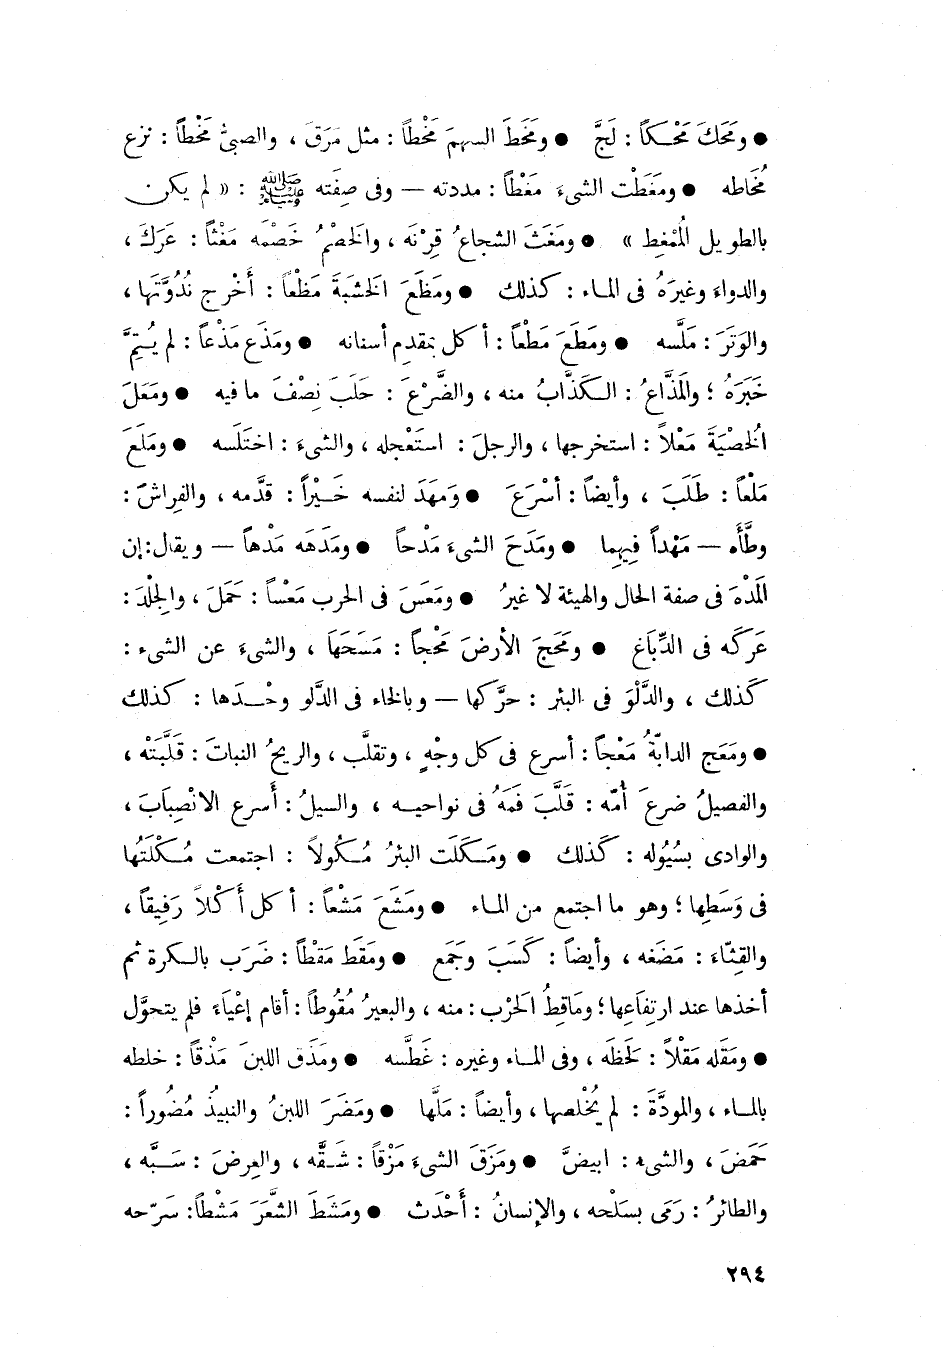 ● ومَحَكَ مَحْـكاً : لَجَّ ● ومَخَطَ السهمَ مَخْطاً : مثل مَرَقَ ، والصبىَّ مَخْطاً : نزع
مُخَاطه ● ومَغَطْت الشىءَ مَغْطاً : مددته — وفى صِفَته ﷺ : « لم يكن
بالطويل المُمْغِط » ● ومَغَثَ الشجاعُ قِرْنَه ، والخصْمُ خَصْمَه مَغْثاً : عَرَكَ ،
والدواءَ وغيرَهُ فى المـاء : كذلك ● ومَظَعَ الخشبَةَ مَظْعاً : أَخْرج نُدُوَّتَها ،
والوَتَرَ : مَلَّسه ● ومَطَعَ مَطْعاً : أكل بمقدِم أسنانه ● ومَذَع مَذْعاً : لم يُـتِمَّ
خَبَرَهُ ؛ والمَذَّاعُ : الـكَذَّابُ منه ، والضَّرْعَ : حَلَبَ نِصْفَ ما فيه ● ومَعَلَ
الخصْيَةَ مَعْلاً : استخرجها ، والرجلَ : استَعْجله ، والشىءَ : اختَلَسه ● ومَلَعَ
مَلْعاً : طَلَبَ ، وأيضاً : أسْرَعَ ● ومَهَدَ لنفسه خَـيْراً : قدَّمه ، والفِراشَ :
وطَّأَه — مَهْداً فِيهِما ● ومَدَحَ الشىءَ مَدْحاً ● ومَدَهَه مَدْهاً — ويقال : إن
المَدْهَ فى صفة الحال والهيئة لا غيرُ ● ومَعَسَ فى الحرب مَعْساً : حَمَلَ ، والجِلْدَ :
عَرَكَه فى الدِّبَاغ ● ومَحَجَ الأرضَ مَحْجاً : مَسَحَهَا ، والشىءَ عن الشىء :
كَذلك ، والدَّلْوَ فى البئر : حرَّكها — وبالخاء فى الدَّلو وحْـدَها : كذلك
● ومَعَج الدابّةُ مَعْجاً : أسرع فى كل وجْهٍ ، وتقلَّب ، والريحُ النباتَ : قَلَّبَتْه ،
والفصيلُ ضرعَ أُمّه : قَلَّبَ فَمَهُ فى نواحيـه ، والسيلُ : أَسرع الانْصِبَابَ ،
والوادى بسُيُوله : كَذلك ● ومَـكَلَت البئرُ مُـكُولاً : اجتمعت مُـكْلَتُها
فى وَسَطِها ؛ وهو ما اجتمع من المـاء ● ومَشَعَ مَشْعاً : أكل أَكْلاً رَفِيقاً ،
والقِثّاءَ : مَضَغه ، وأيضاً : كَسَبَ وجَمَع ● ومَقَط مَقْطاً : ضَرَب بالـكرة ثم
أخذها عند ارتِفَاعِها ؛ ومَاقِطُ الحَرْب : منه ، والبعيرُ مُقُوطاً : أقام إعْيَاءً فلم يتحوَّل
● ومَقَله مَقْلاً : لَحَظَه ، وفى المـاء وغيره : غَطَّسه ● ومَذَق اللبنَ مَذْقاً : خلطه
بالمـاء ، والمودَّةَ : لم يُخْلصها ، وأيضاً : مَلَّها ● ومَضَرَ اللبنُ والنبيذُ مُضُوراً :
حَمَضَ ، والشىء : ابيضَّ ● ومَزَقَ الشىءَ مَزْقاً : شَـقَّه ، والعِرضَ : سَـبَّه ،
والطائرُ : رَمَى بسَلْحه ، والإنسانُ : أَحْدَث ● ومَشَطَ الشَّعَرَ مَشْطاً : سَرّحه
٢٩٤